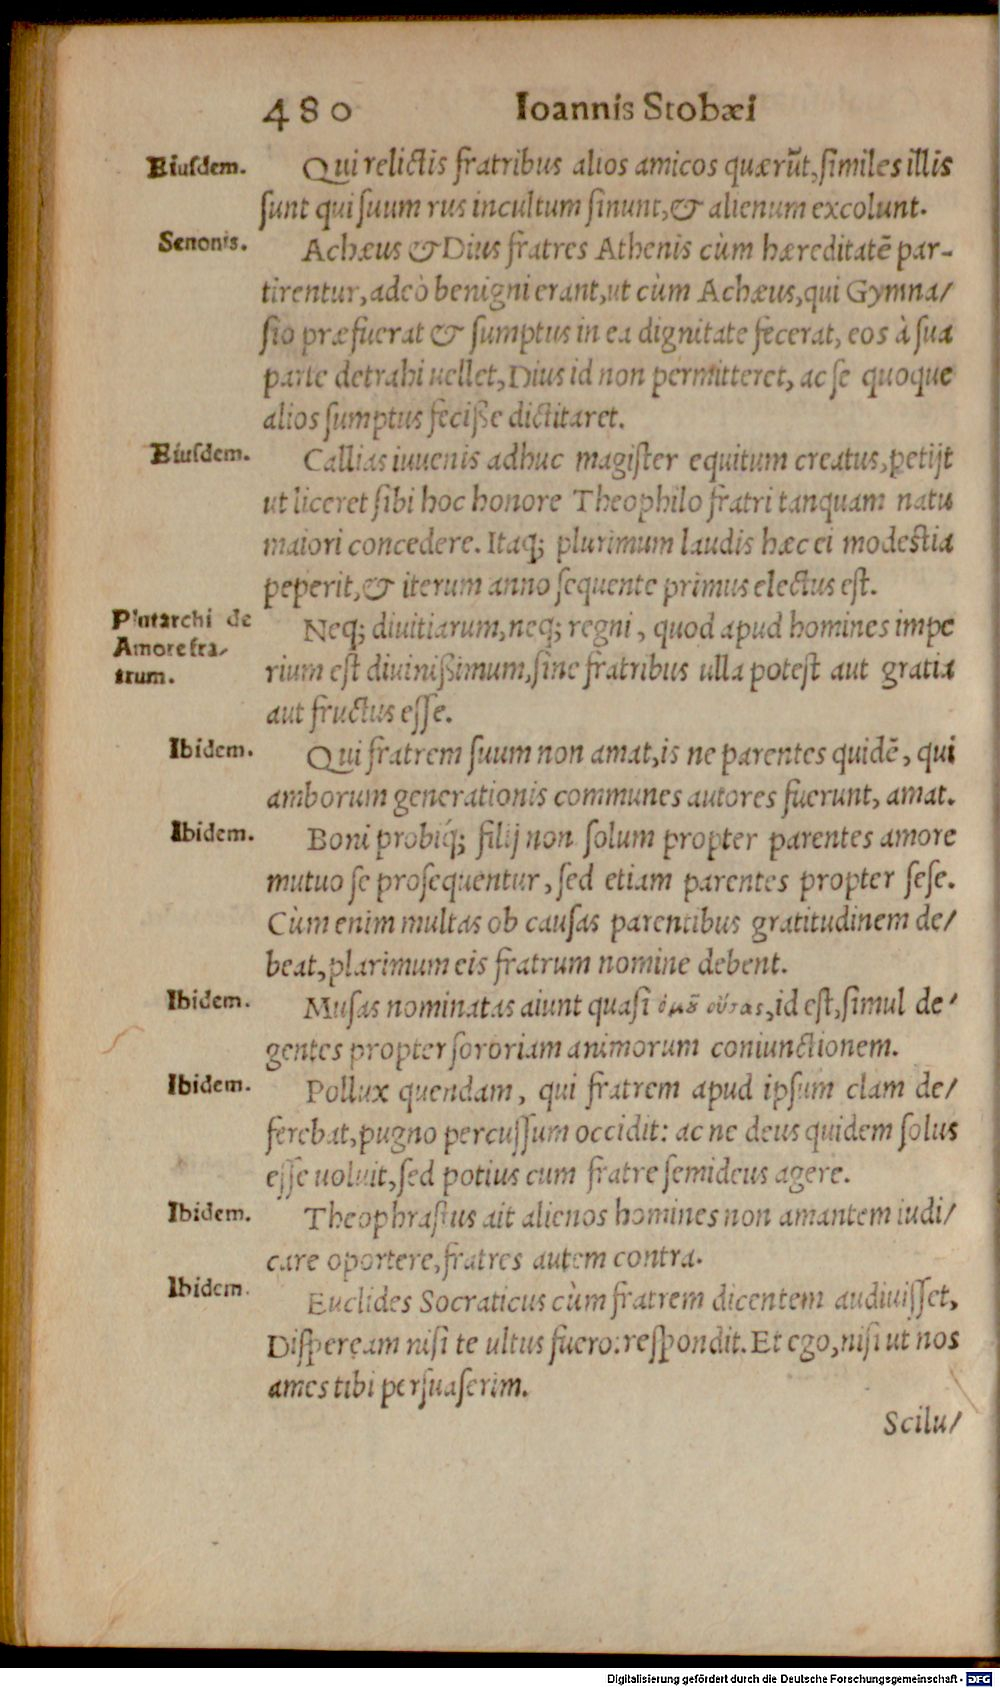 480 Ioannis Stobæi
Eiusdem. Qui relictis fratribus alios amicos quærūt, similes illis
sunt qui suum rus incultum sinunt, & alienum excolunt.
Senonis. Achæus & Dius fratres Athenis cùm hæreditatē par-
tirentur, adeò benigni erant, ut cùm Achæus, qui Gymna/
sio præfuerat & sumptus in ea dignitate fecerat, eos à sua
parte detrahi uellet, Dius id non permitteret, ac se quoque
alios sumptus fecisse dictitaret.
Eiusdem. Callias iuuenis adhuc magister equitum creatus, petijt
ut liceret sibi hoc honore Theophilo fratri tanquam natu
maiori concedere. Itaq; plurimum laudis hæc ei modestia
peperit, & iterum anno sequente primus electus est.
Plutarchi de
Amore fra/
trum.
Neq; diuitiarum, neq; regni, quod apud homines impe
rium est diuinissimum, sine fratribus ulla potest aut gratia
aut fructus esse.
Ibidem. Qui fratrem suum non amat, is ne parentes quidē, qui
amborum generationis communes autores fuerunt, amat.
Ibidem. Boni probiq́; filij non solum propter parentes amore
mutuo se prosequentur, sed etiam parentes propter sese.
Cùm enim multas ob causas parentibus gratitudinem de/
beat, plurimum eis fratrum nomine debent.
Ibidem. Musas nominatas aiunt quasi ὁμοῦ οὔσας, id est, simul de/
gentes propter sororiam animorum coniunctionem.
Ibidem. Pollux quendam, qui fratrem apud ipsum clam de/
ferebat, pugno percussum occidit: ac ne deus quidem solus
esse uoluit, sed potius cum fratre semideus agere.
Ibidem. Theophrastus ait alienos homines non amantem iudi/
care oportere, fratres autem contra.
Ibidem. Euclides Socraticus cùm fratrem dicentem audiuisset,
Dispeream nisi te ultus fuero: respondit. Et ego, nisi ut nos
ames tibi persuaserim.
Scilu/
Digitalisierung gefördert durch die Deutsche Forschungsgemeinschaft - DFG